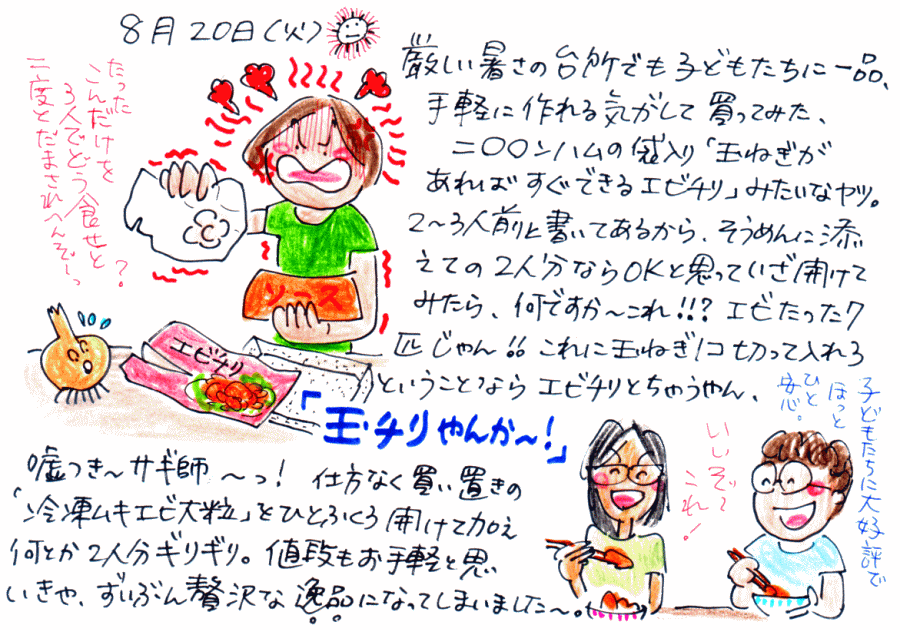 8月20日(火)
厳しい暑さの台所でも子どもたちに一品、
手軽に作れる気がして買ってみた、
二〇〇ンハムの袋入り「玉ねぎが
あればすぐできるエビチリ」みたいなヤツ。
2〜3人前と書いてあるから、そうめんに添
えての2人分ならOKと思っていざ開けて
みたら、何ですか〜これ!!?エビたった7
匹じゃん!!これに玉ねぎ1コ切って入れろ
ということならエビチリとちゃうやん、
「玉チリやんか〜!」
たった
こんだけを
3人でどう食せと?
二度とだまされへんぞーっ
ソース
エビチリ
嘘つき〜サギ師〜っ!仕方なく買い置きの
「冷凍ムキエビ大粒」をひとふくろ開けて加え
何とか2人分ギリギリ。値段もお手軽と思
いきや、ずいぶん贅沢な逸品になってしまいました〜。
いいぞ〜
これ!
子どもたちに大好評で
ほっと
ひと
安心。